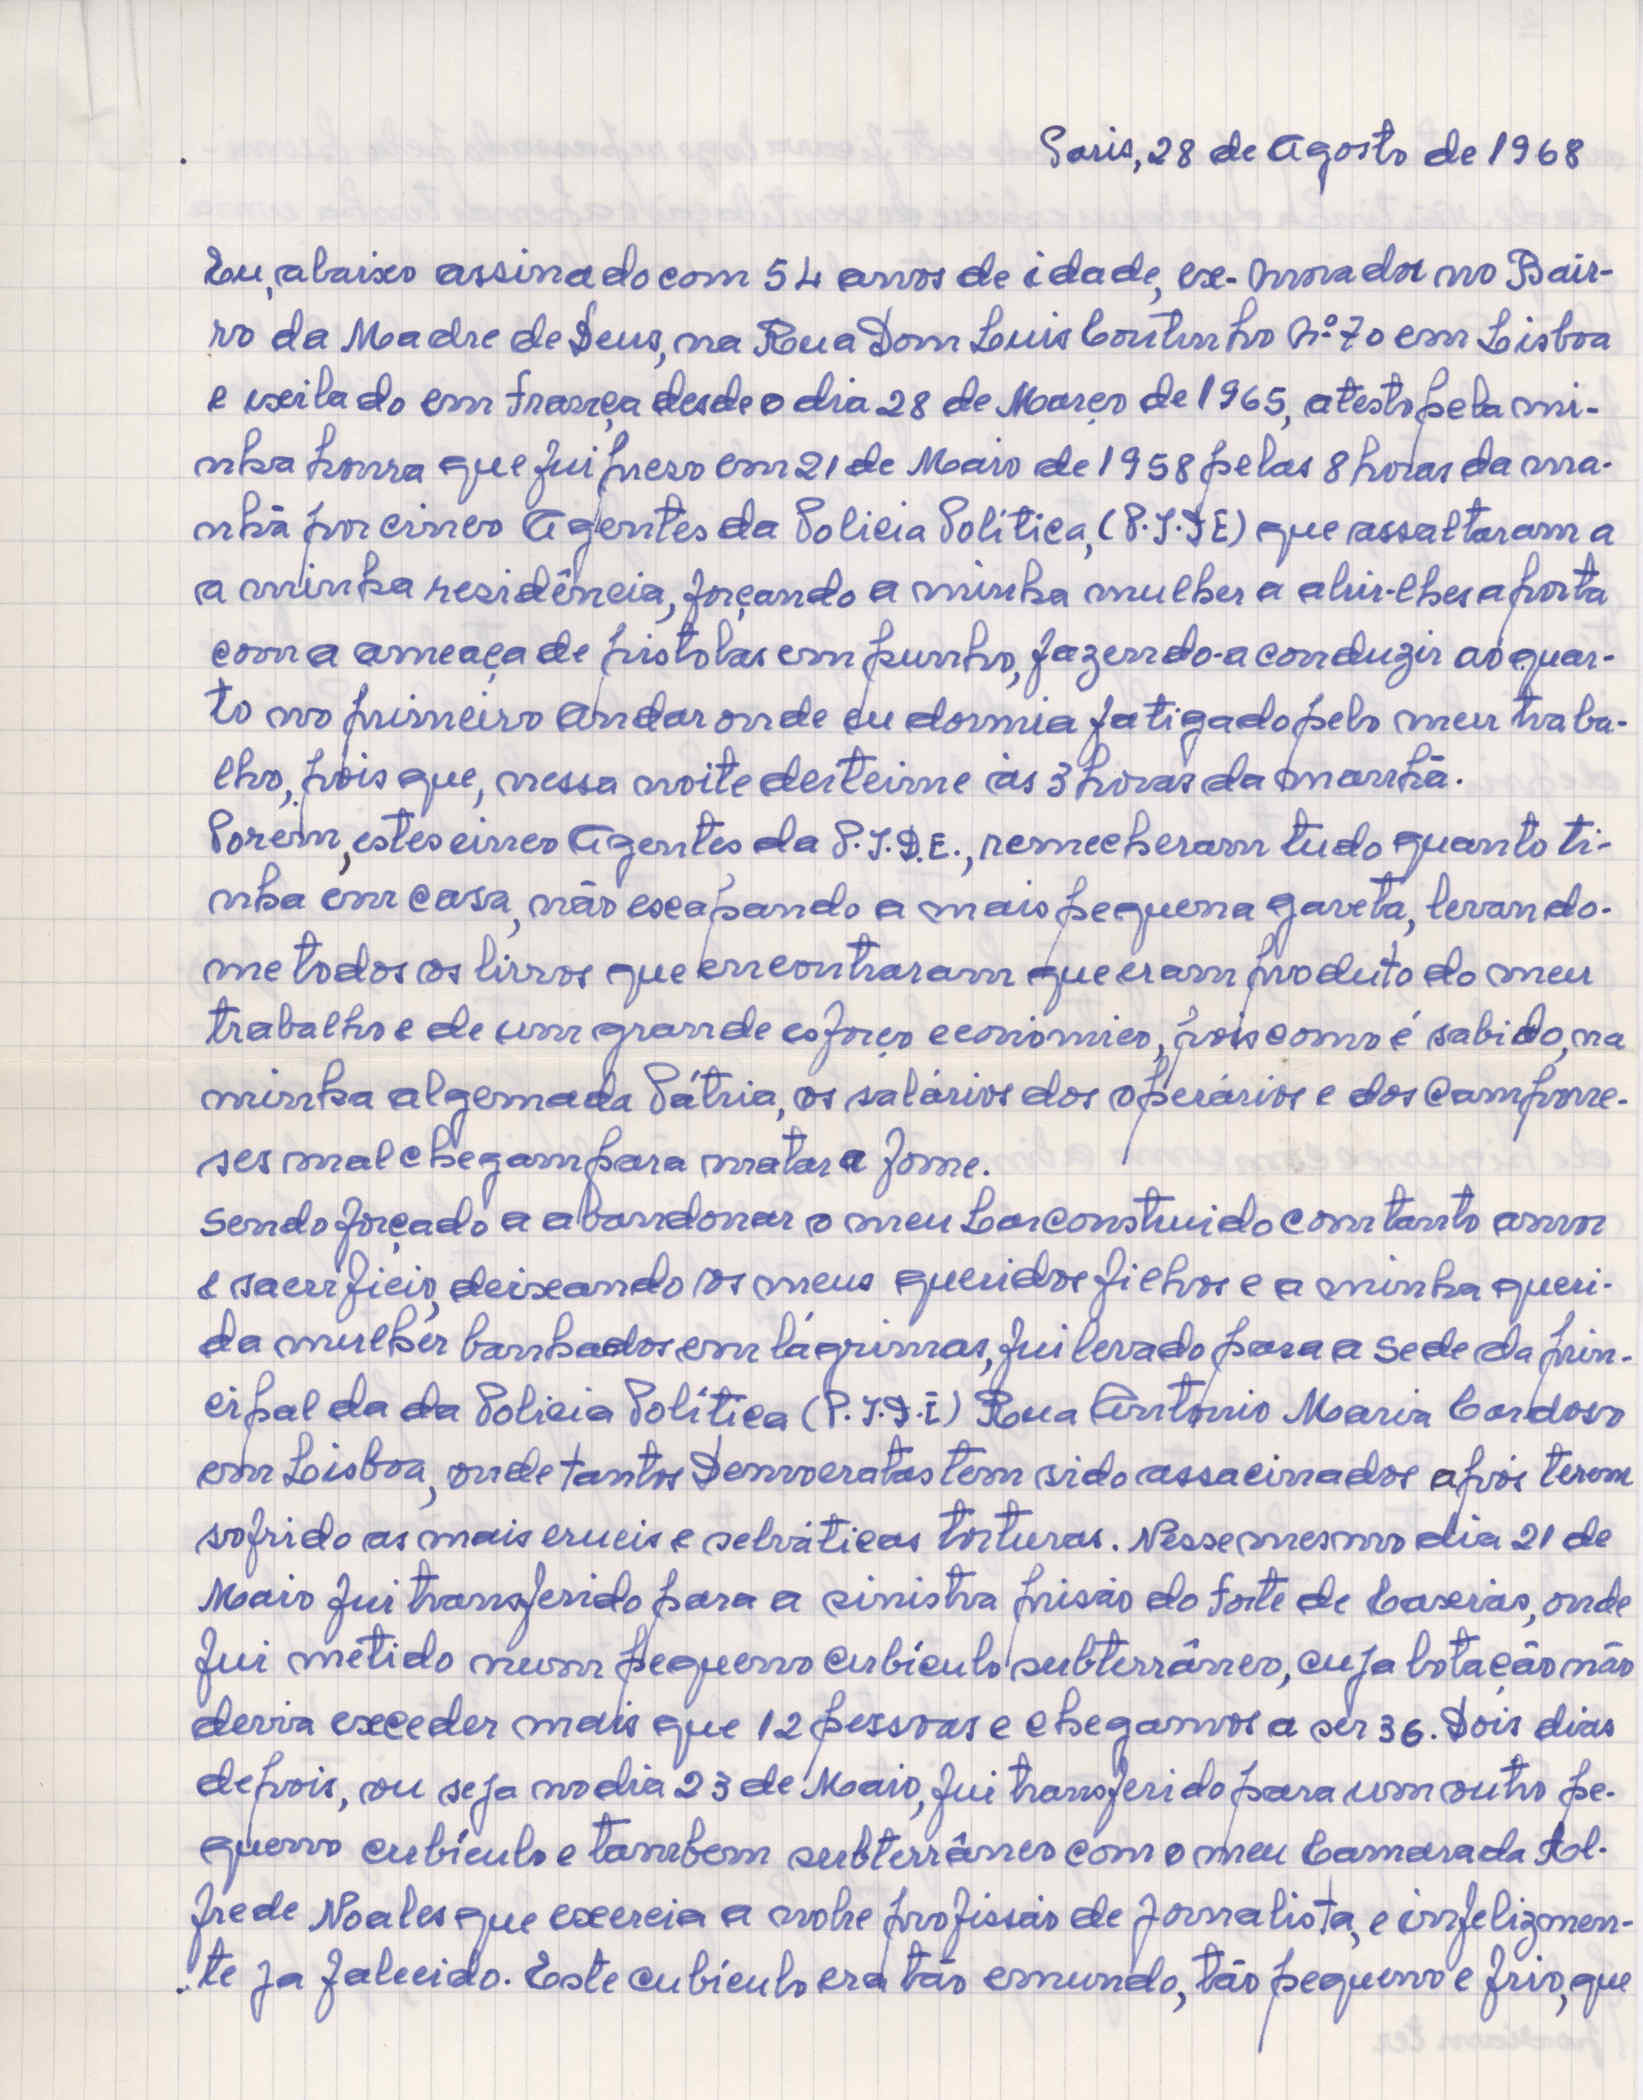 Paris, 28 de Agosto de 1968
Eu, abaixo assinado com 54 anos de idade, ex-morador no Bair-
ro da Madre de Deus, na Rua Dom Luis Coutinho Nº 70 em Lisboa
e exilado em França desde o dia 28 de Março de 1965, atesto pela mi-
nha honra que fui preso em 21 de Maio de 1958 pelas 8 horas da ma-
nhã por cinco Agentes da Policia Política, (P.I.DE) que assaltaram a
a minha residência, forçando a minha mulher a abir-lhes a porta
com a ameaça de pistolas em punho, fazendo-a conduzir ao quar-
to no primeiro andar onde eu dormia fatigado pelo meu traba-
lho, pois que, nessa noite deiteime às 3 horas da manhã.
Porém, estes cinco Agentes da P.I.D.E., remecheram tudo quanto ti-
nha em casa, não escapando a mais pequena gaveta, levando-
me todos os livros que encontraram que eram produto do meu
trabalho e de um grande esforço economico, pois como é sabido, na
minha algemada Pátria, os salários dos operários e dos campone-
ses mal chegam para matar a fome.
Sendo forçado a abandonar o meu Lar construido com tanto amor
e sacrificio, deixando os meus queridos filhos e a minha queri-
da mulher banhados em lágrimas, fui levado para a sede da prin-
cipal da da Policia Política (P.I.D.E) Rua António Maria Cardoso
em Lisboa, onde tantos Democratas tem sido assacinados após terem
sofrido as mais crueis e selváticas torturas. Nesse mesmo dia 21 de
Maio fui transferido para a sinistra prisão do forte de Caxias, onde
fui metido num pequeno cubículo subterrâneo, cuja lotação não
devia exceder mais que 12 pessoas e chegamos a ser 36. Dois dias
depois, ou seja no dia 23 de Maio, fui transferido para um outro pe-
queno cubículo e tambem subterrâneo com o meu Camarada Rol-
frede Noales que exercia a nobre profissão de jornalista, e infelizmen-
te ja falecido. Este cubículo era tão emundo, tão pequeno e frio, que